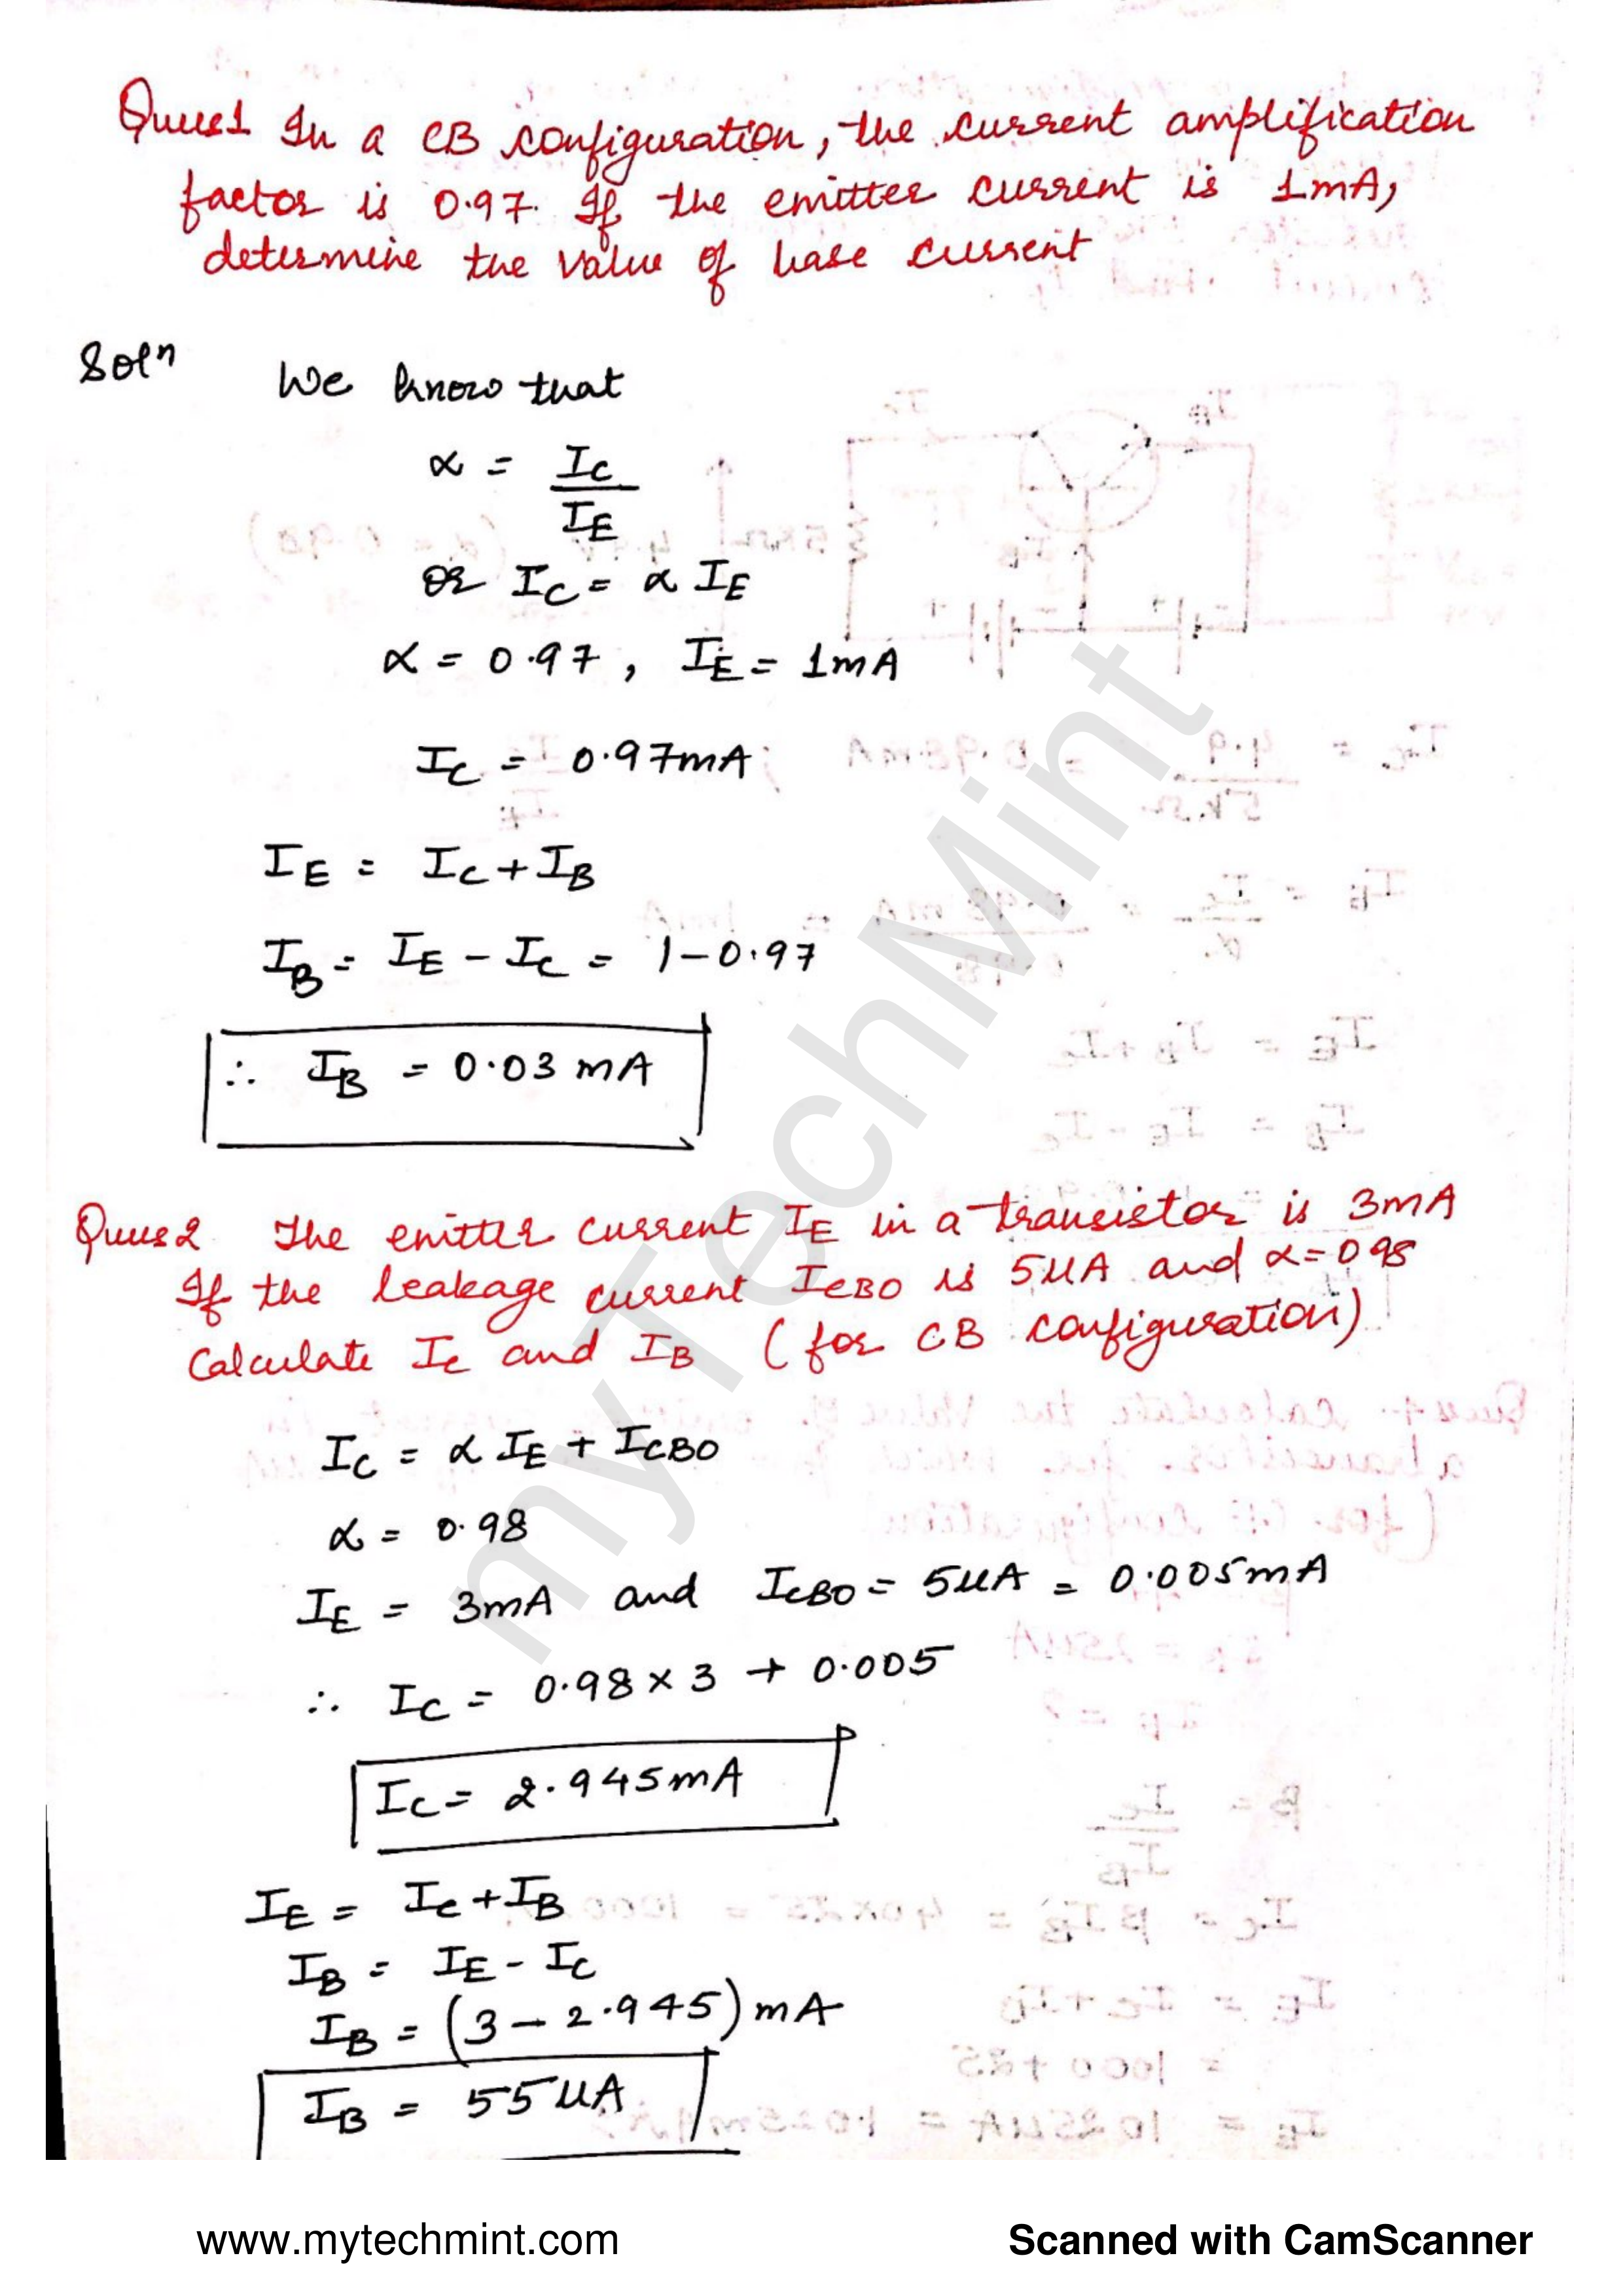 Ques1 In a CB configuration, the current amplification
factor is 0.97. If the emitter current is 1mA,
determine the value of base current
Solⁿ We know that
α = I_C / I_E
or I_C = α I_E
α = 0.97, I_E = 1mA
I_C = 0.97mA
I_E = I_C + I_B
I_B = I_E - I_C = 1-0.97
∴ I_B = 0.03 mA
Ques2 The emitter current I_E in a transistor is 3mA
If the leakage current I_CBO is 5μA and α=0.98
Calculate I_C and I_B (for CB configuration)
I_C = α I_E + I_CBO
α = 0.98
I_E = 3mA and I_CBO = 5μA = 0.005mA
∴ I_C = 0.98 × 3 + 0.005
I_C = 2.945mA
I_E = I_C + I_B
I_B = I_E - I_C
I_B = (3 - 2.945) mA
I_B = 55μA
myTechMint
www.mytechmint.com
Scanned with CamScanner